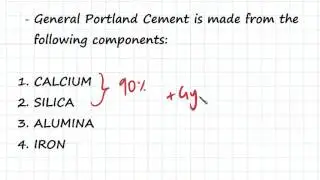 - General Portland Cement is made from the
following components:
1. CALCIUM
2. SILICA
3. ALUMINA
4. IRON
90%
+ Gy